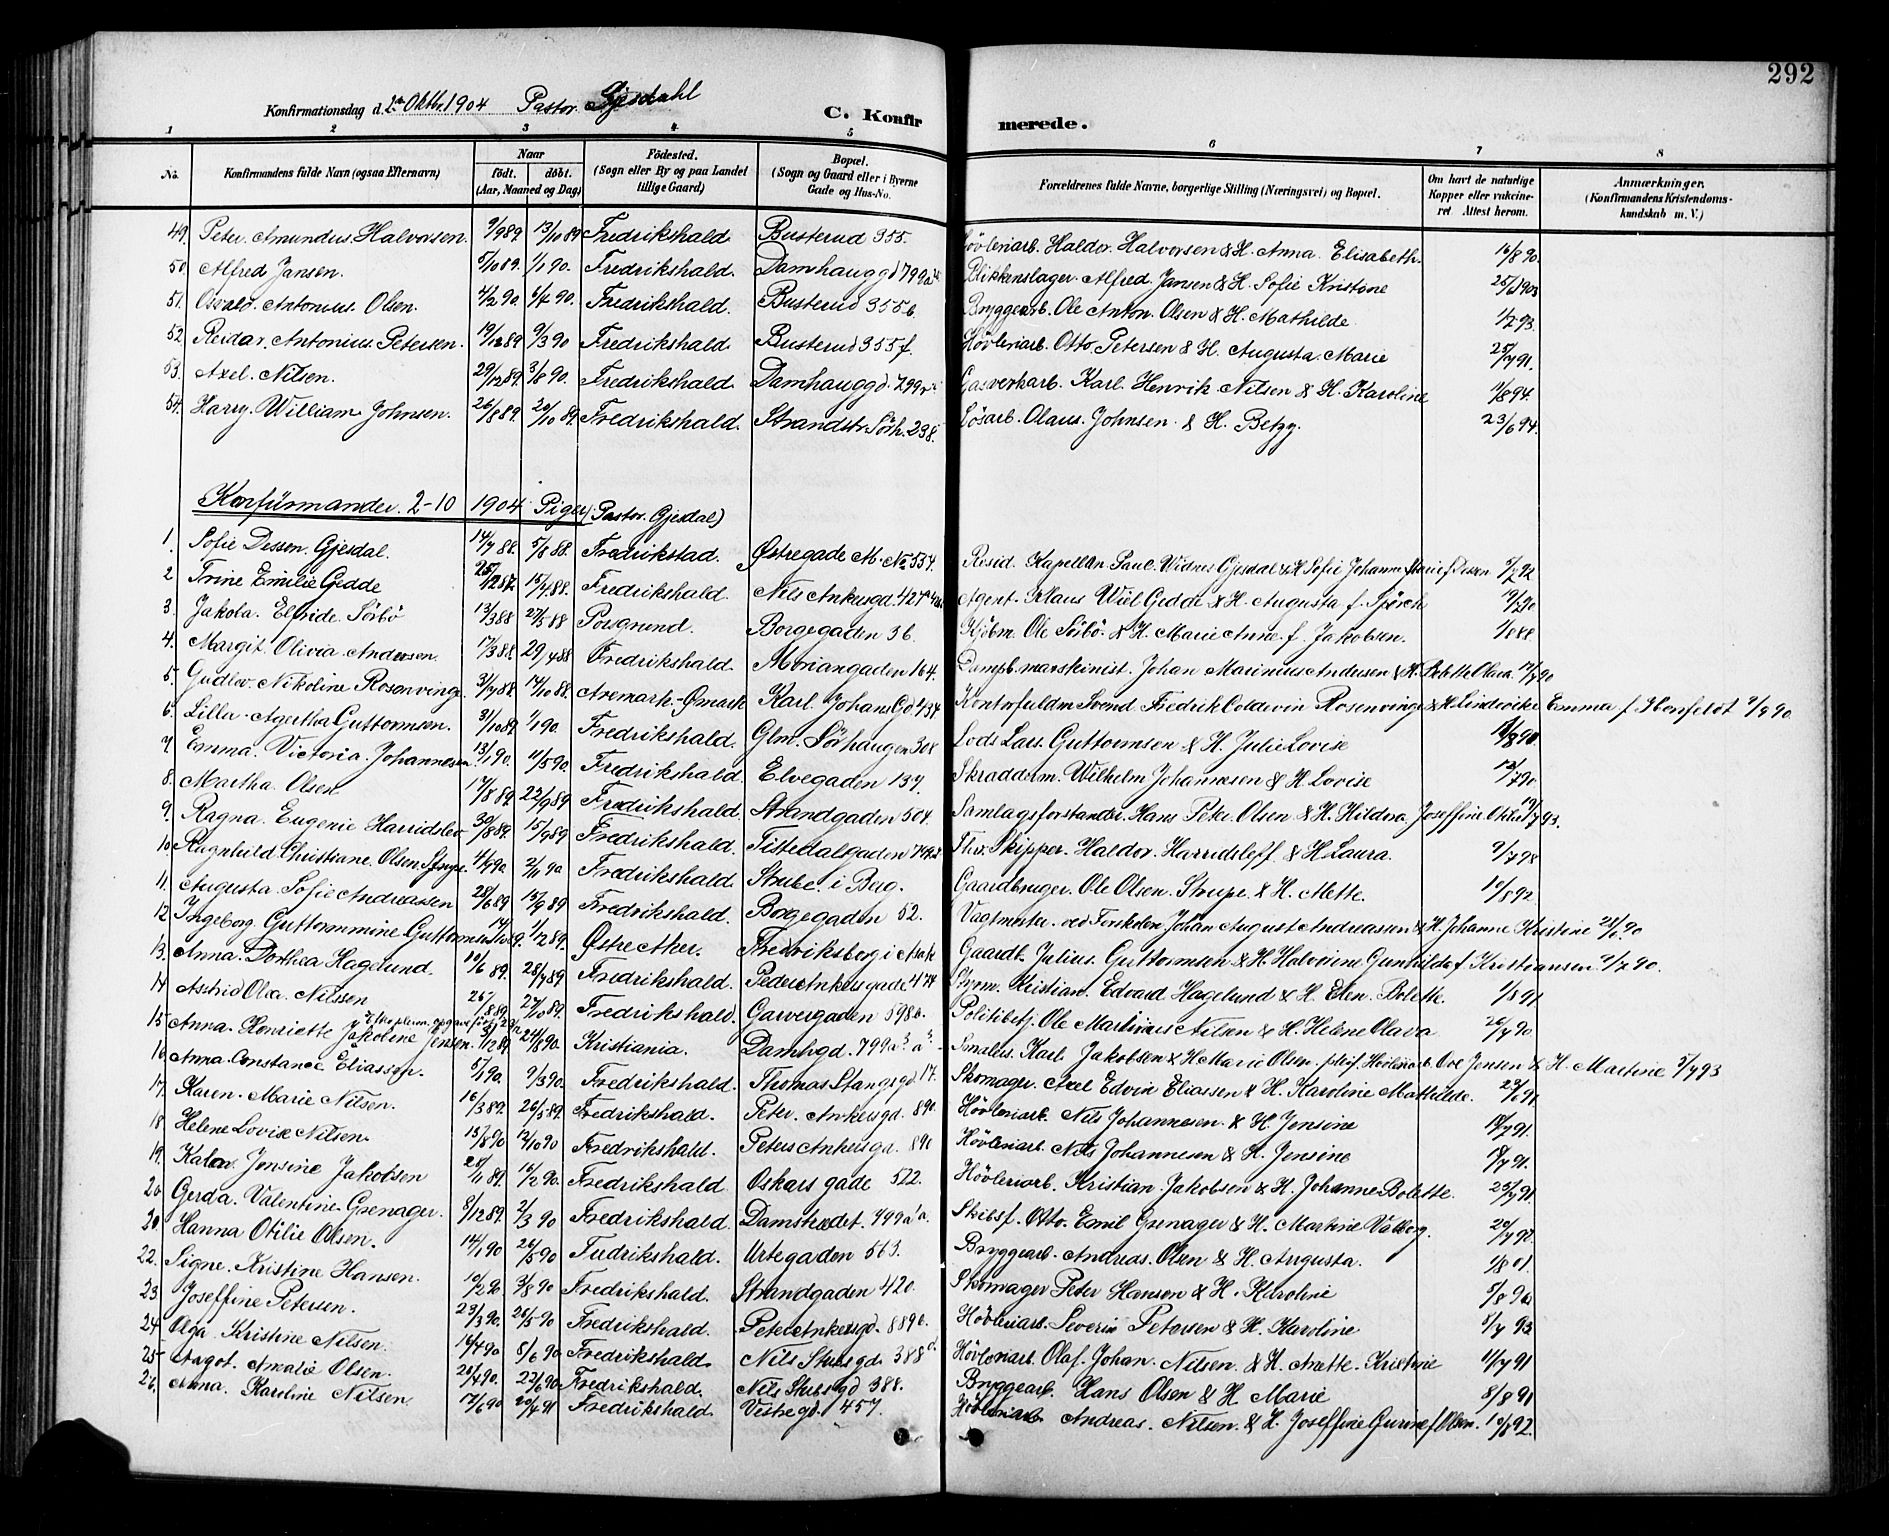 292
Konfirmationsdag d. 2den Oktbr. 1904 Pastor Gjesdahl
C. Konfirmerede.
1 2 3 4 5 6 7 8
No. Konfirmandens fulde Navn (ogsaa Efternavn) Naar födt. döbt. (Aar, Maaned og Dag) Födested. (Sogn eller By og paa Landet tillige Gaard) Bopæl. (Sogn og Gaard eller i Byerne Gade og Hus-No. Forældrenes fulde Navne, borgerlige Stilling (Næringsvei) og Bopæl. Om havt de naturlige Kopper eller vakcineret Attest herom. Anmærkninger. (Konfirmandens Kristendomskundskab m. V.)
49. Peter Amundus Halvorsen. 9/9 89. 13/10 89 Fredrikshald Busterud 355. Hövleriarb. Haldor Halvorsen & H. Anna Elisabeth. 16/8 90.
50. Alfred Jansen. 5/10 89. 1/1 90. Fredrikshald. Damhauggd 799a Blikkenslager Alfred Jansen & H. Sofie Kristine 25/6 1903
51. Osvald Antonius Olsen. 4/2 90. 6/4 90. Fredrikshald. Busterud 355 b. Bryggearb. Ole Anton Olsen & H. Mathilde
52. Reidar Antonius Petersen. 19/12 89 9/3 90 Fredrikshald Busterud 355 f. Hövleriarb. Otto Petersen & H. Augusta Marie 25/7 91.
53. Axel Nilsen. 29/12 89. 3/8 90. Fredrikshald. Damhauggd. 799 Gasverkarb. Karl Henrik Nilsen & H. Karoline
54. Harry William Johnsen. 26/8 89. 20/10 89. Fredrikshald. Strandstr. Sörh. 238. Lösarb. Olaus Johnsen & H. Betzy. 23/6 94.
Konfirmander 2-10 1904 Piger (Pastor Gjesdal)
1. Sofie Dessen Gjesdal. 14/7 88. 5/8 88. Fredrikstad. Østregade M. No 534. Resid. Kapellan Paul Gjesdal & H. Sofie Johanne Marie f. Dessen
2 Trine Emilie Gedde 15/4 88. Fredrikshald. Nils Ankersgd. Agent Klaus Wiel Gedde & H. Augusta f. Spörck
3. Jakoba Elfride Sörbö 13/3 88 27/5 88 Porsgrund. Borgegaden 36. Kjöbm. Ole Sörbö & H. Marie Anne f. Jakobsen.
4. Margit Olivia Andersen. 17/3 88. 29/4 88 Fredrikshald. Moriangaden 164. Dampb.maskinist. Johan Marinius Andersen & H. Bolette Olava
5. Gudlev Nikoline Rosenvinge 31/7 88. 14/10 88. Aremark-Ømark Karl Johans Gd 434 Svend Fredrik Coldevin Rosenvinge & H. Emma f.
6. Lilla Agertha Guttormsen. 31/10 89. 1/1 90. Fredrikshald. Glm. Sörhaugen 308 Lods Lars Guttormsen & H. Julie Lovise
7 Emma Victoria Johannesen 13/1 90. 11/5 90 Fredrikshald. Elvegaden 137. Skradderm. Wilhelm Johannesen & H. Lovise 12/7 90.
8. Martha Olsen 17/8 89. 22/9 89 Fredrikshald. Strandgaden 504. Samlagsforstander Hans Peter Olsen & H. Hildora Joseffine
9. Ragna Eugenie Harridslev 30/8 89. 15/9 89 Fredrikshald. Tistedalsgaden Skipper Haldor Harridsleff & H. Laura. 9/7 98
10. Ragnhild Christiane Olsen Strupe 2/11 90 Fredrikshald Strube i Berg. Gaardbruger Ole Olsen Strupe & H. Mette. 10/8 92
11. Augusta Sofie Andreassen 28/6 89 15/9 89 Fredrikshald. Borgegaden 52. Vagtmester ved Johan August Andreassen & H. Johanne Kristine
12 Ingeborg Guttormmine Guttormsen 1/12 89. Østre Aker. Fredriksberg i Gaardb. Julius Guttormsen & H. Halvorine Gunhilda f. Kristiansen
13. Anna Dorthea Hagelund. 10/6 89. 28/7 89 Fredrikshald. Peder Ankersgade 474 Styrm. Kristian Edvard Hagelund & H. Elen Bolette.
14 Astrid Olea Nilssen 26/8 89. 27/10 89. Fredrikshald. Garvergaden 598 b. Politibetj. Ole Martinius Nilsen & H. Helene Olava 26/7 90
15. Anna Henriette Jakoline Jensen 24/8 90. Kristiania. Damhgd. 799a Karl Jakobsen & H. Marie Olsen. Ove Jensen & H. Martine
16. Anna Constance Eliassen. 5/1 90. 9/3 90. Fredrikshald. Thomas Stangsgd 17. Skomager Axel Edvin Eliassen & H. Karoline Mathilde.
17. Karen Marie Nilsen. 16/3 89. 26/5 89. Fredrikshald. Peter Ankersgd. 890. Hövleriarb. Nils Johannesen & H. Jensine 18/7 91.
18. Helene Lovise Nilsen. 13/8 90 12/10 90 Fredrikshald. Peters Ankersgd. 890 Hövleriarb. Nils Johannesen & H. Jensine 18/7 91.
19. Jensine Jakobsen 16/2 90. Fredrikshald Oskars gade 522. Hövleriarb. Kristian Jakobsen & H. Johanne Bolette. 25/7 91.
20. Gerda Valentine Grenager. 8/12 89. 2/3 90 Fredrikshald Damstrædet. 799a Skibsf. Otto Emil Grenager & H. Martine Valborg.
20. Hanna Otilie Olsen. 14/1 90 26/5 90 Fredrikshald. Urtegaden 563. Bryggearb. Andreas Olsen & H. Augusta. 1/8 01.
22. Signe Kristine Hansen. 10/2 90. 3/8 90 Fredrikshald. Strandgaden 420. Skomager Peter Hansen & H. Karoline
23. Joseffine Petersen. 23/3 90. 26/5 90 Fredrikshald. Peter Ankersgd. 889 b. Hövleriarb. Severin Petersen & H. Karoline
24. Olga Kristine Nilsen. 14/4 90 8/6 90 Fredrikshald. Nils Stubsgd 388 Hövleriarb. Olaf Johan Nilsen & H. Anette Kristine 11/7 91
25. Aagot Amalie Olsen. 26/4 90. 22/6 90 Fredrikshald. Nils Stubsgd 388. Bryggearb. Hans Olsen & H. Marie 8/8 91
26. Anna Karoline Nilsen 17/6 90 Fredrikshald Vestregd. 457. Hövleriarb. Andreas Nilsen & H. Joseffine Gurine f. Olsen. 10/8 92.